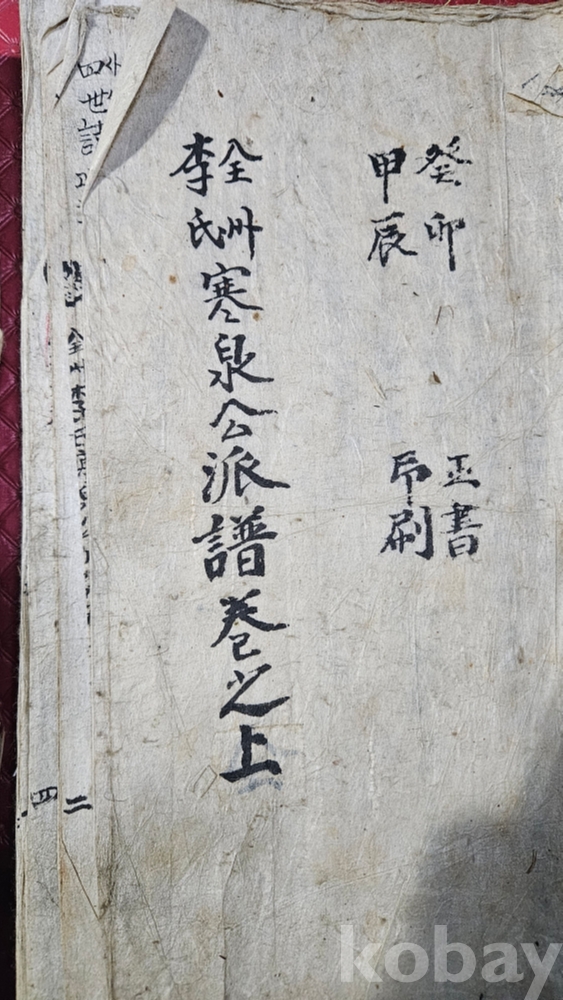 癸卯 正書
甲辰 印刷
全州
李氏
寒泉公派譜卷之上
四世
二
四
kobay